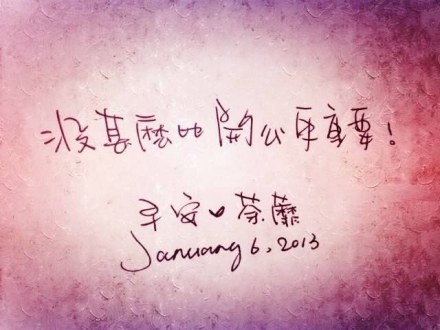 沒甚麼比開心更重要！
平安♥荼蘼
January 6, 2013